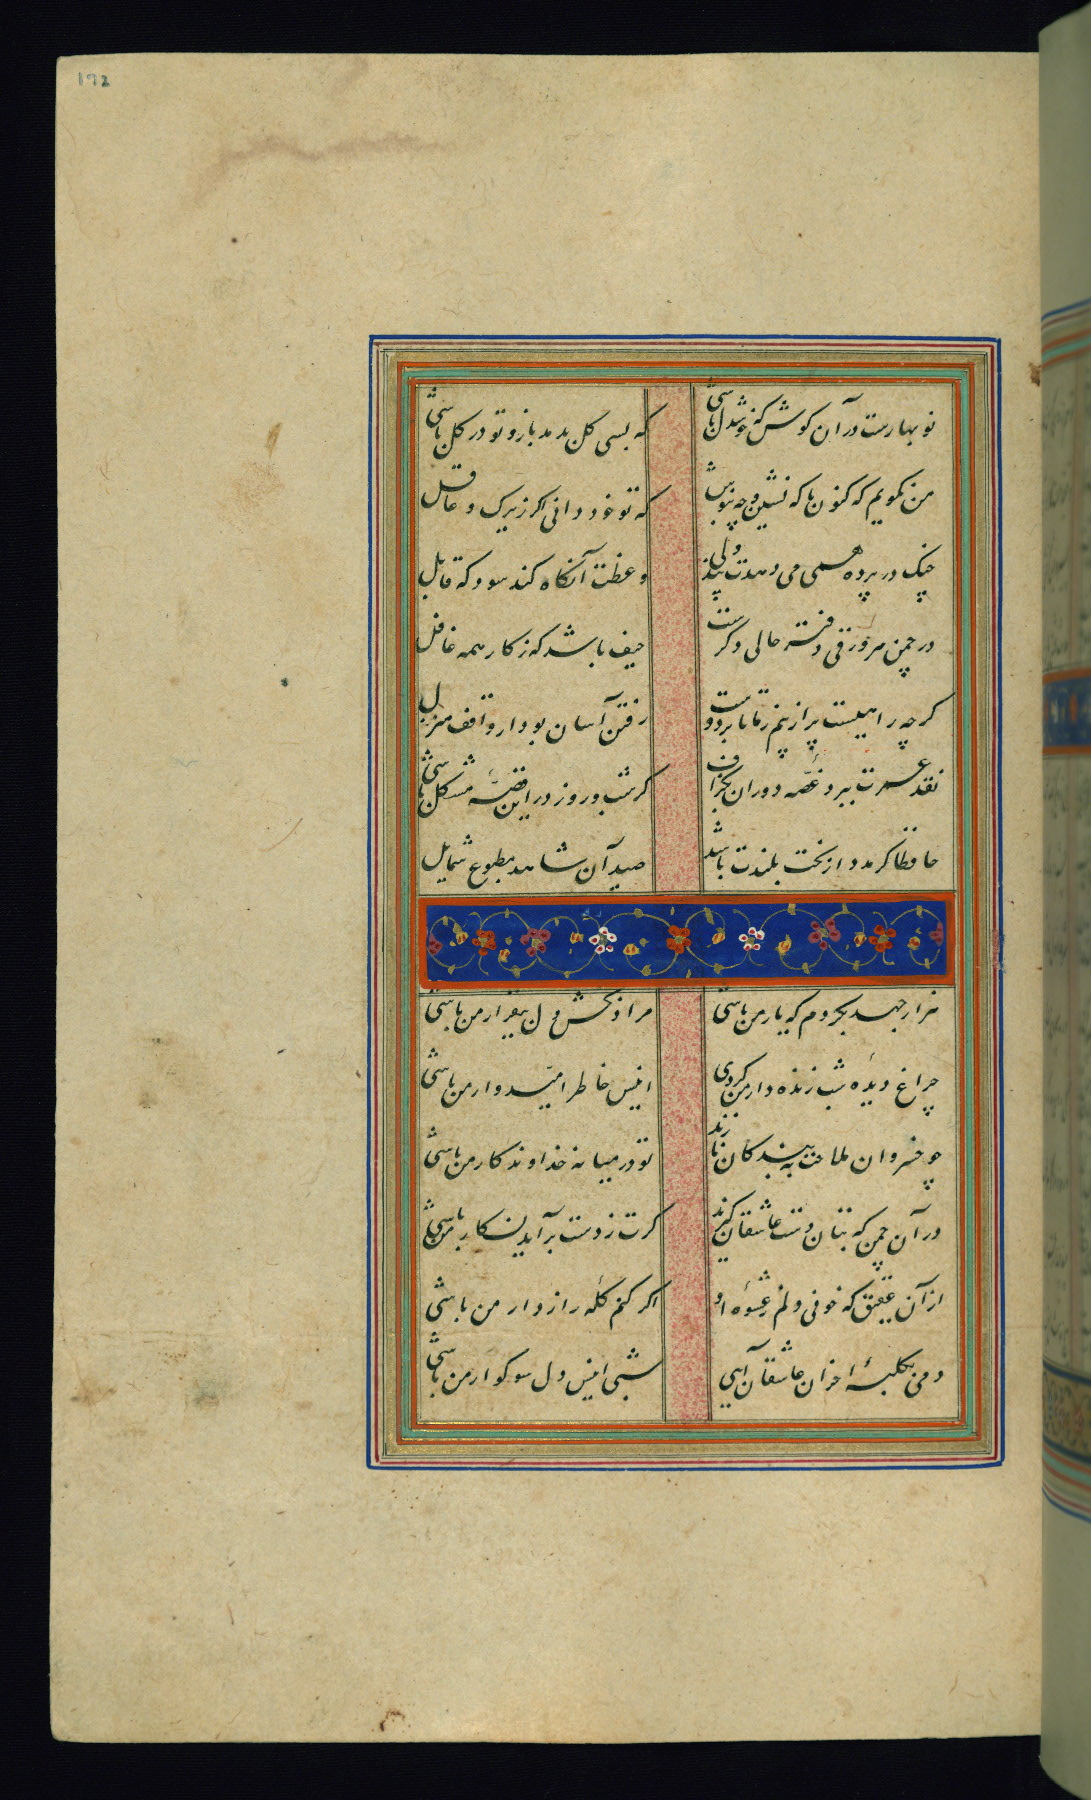 ۱۹۲
نو بهارست در آن کوش که خوشدل باشی
که بسی گل بدمد باز و تو در گل باشی
من نکویم که کنون با که نشین و چه بنوش
که تو خود دانی اگر زیرک و عاقل
چنک در پرده همی می دهدت پند ولی
وعظت آنگاه کند سود که قابل
در چمن هر ورقی دفتر حالی دگرست
حیف باشد که ز کار همه غافل
گرچه راهیست پر از بیم ز ما تا بر دوست
رفتن آسان بود ار واقف منزل
نقد عمرت ببرد غصه دوران بگزاف
گر شب و روز در این قصه مشکل باشی
حافظا گر مدد از بخت بلندت باشد
صید آن شاهد مطبوع شمایل
هزار جهد بکردم که یار من باشی
مراد بخش دل بیقرار من باشی
چراغ دیده شب زنده دار من کردی
انیس خاطر امیدوار من باشی
چو خسروان ملاحت به بندکان نازند
تو در میانه خداوندکار من باشی
در آن چمن که بتان دست عاشقان کیرند
کرت ز دست برآید نکار من باشی
از آن عقیق که خونی دلم ز عشوه او
اگر کنم کله رازدار من باشی
دمی بکلبه احزان عاشقان آیی
شبی انیس دل سوکوار من باشی